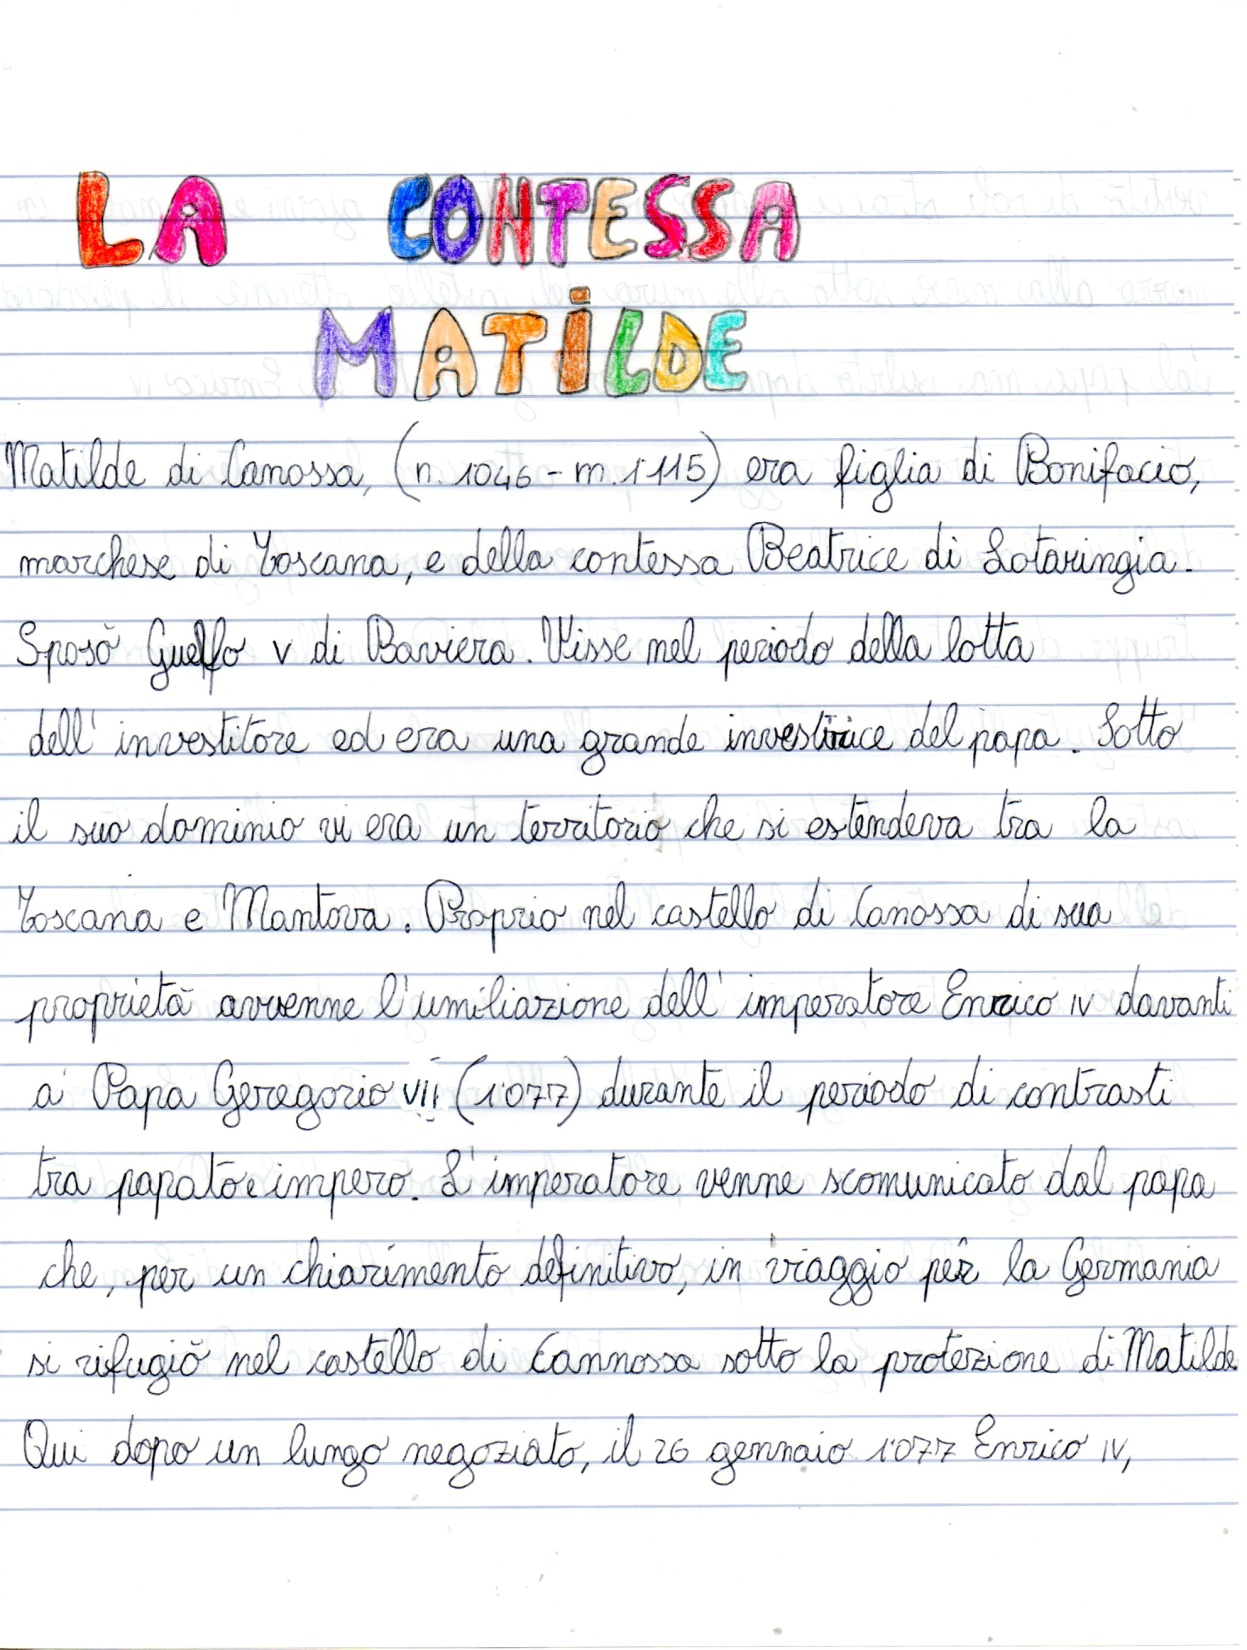 LA CONTESSA
MATILDE
Matilde di Canossa, (n. 1046 - m. 1115) era figlia di Bonifacio,
marchese di Toscana, e della contessa Beatrice di Lotaringia.
Sposò Guelfo V di Baviera. Visse nel periodo della lotta
dell'investitore ed era una grande investirice del papa. Sotto
il suo dominio vi era un territorio che si estendeva tra la
Toscana e Mantova. Proprio nel castello di Canossa di sua
proprietà avvenne l'umiliazione dell'imperatore Enrico IV davanti
a Papa Geregorio VII (1077) durante il periodo di contrasti
tra papato e impero. L'imperatore venne scomunicato dal papa
che, per un chiarimento definitivo, in viaggio per la Germania
si rifugiò nel castello di Cannossa sotto la protezione di Matilde.
Qui dopo un lungo negoziato, il 26 gennaio 1077 Enrico IV,